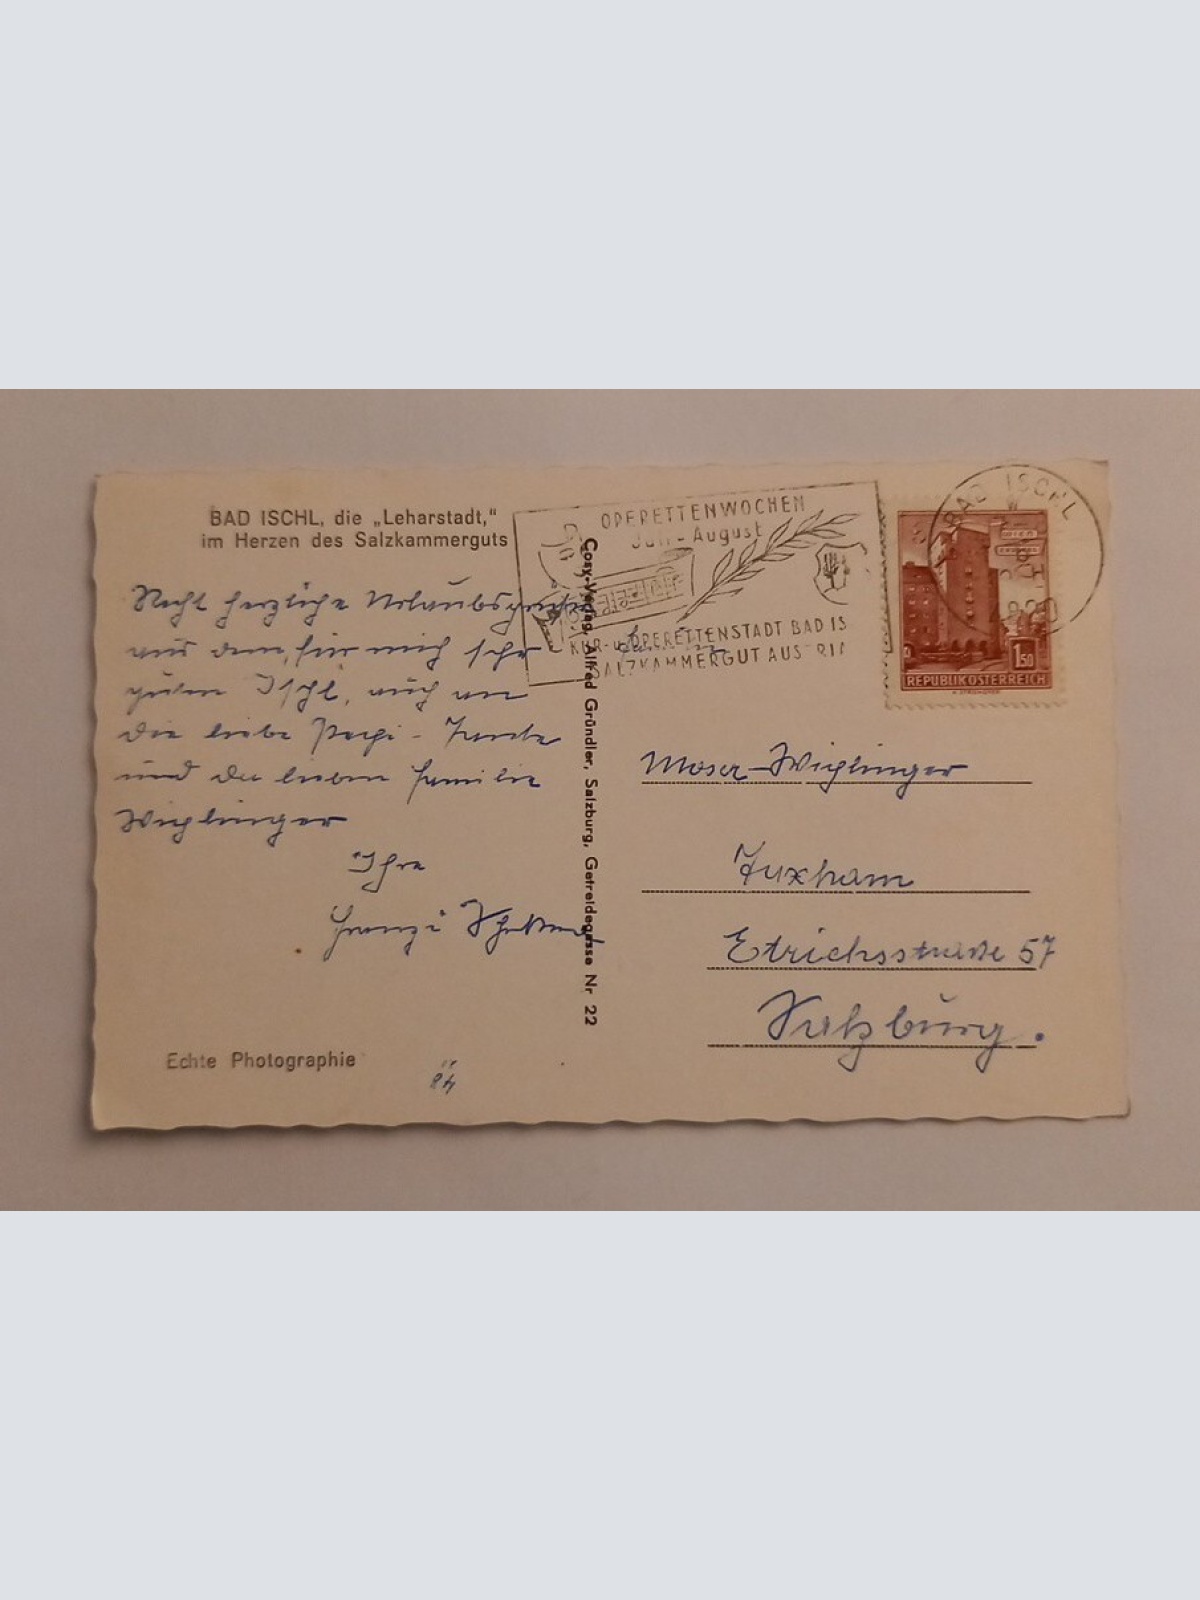 BAD ISCHL, die „Leharstadt,“
im Herzen des Salzkammerguts
Recht herzliche Urlaubsgrüße
aus dem, für mich sehr
guten Ischl, auch an
die liebe Tante
und die lieben Familie
Wichlinger
Ihre
Franzi
Echte Photographie
84
Cosy-Verlag, Alfred Gründler, Salzburg, Getreidegasse Nr 22
OPERETTENWOCHEN
Juli - August
KUR- u. OPERETTENSTADT BAD IS
SALZKAMMERGUT AUSTRIA
BAD ISCHL
WIEN
1.50
REPUBLIK ÖSTERREICH
Familie
Moser-Wichlinger
Fuxham
Etrichsstraße 57
Salzburg.